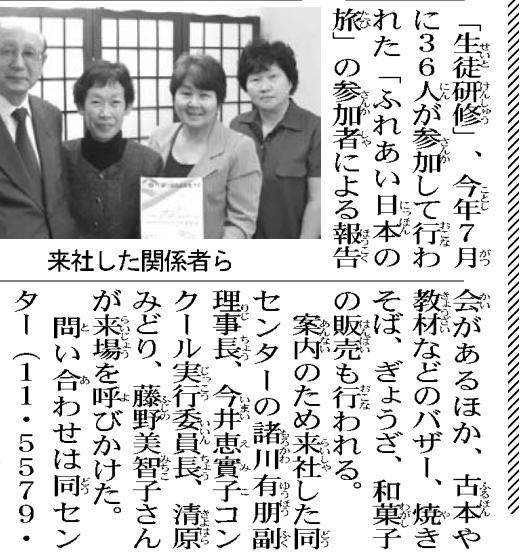 「生徒研修」、今年7月
に36人が参加して行わ
れた「ふれあい日本の
旅」の参加者による報告
来社した関係者ら
会があるほか、古本や
教材などのバザー、焼き
そば、ぎょうざ、和菓子
の販売も行われる。
案内のため来社した同
センターの諸川有朋副
理事長、今井恵實子コン
クール実行委員長、清原
みどり、藤野美智子さん
が来場を呼びかけた。
問い合わせは同セン
ター（11・5579・